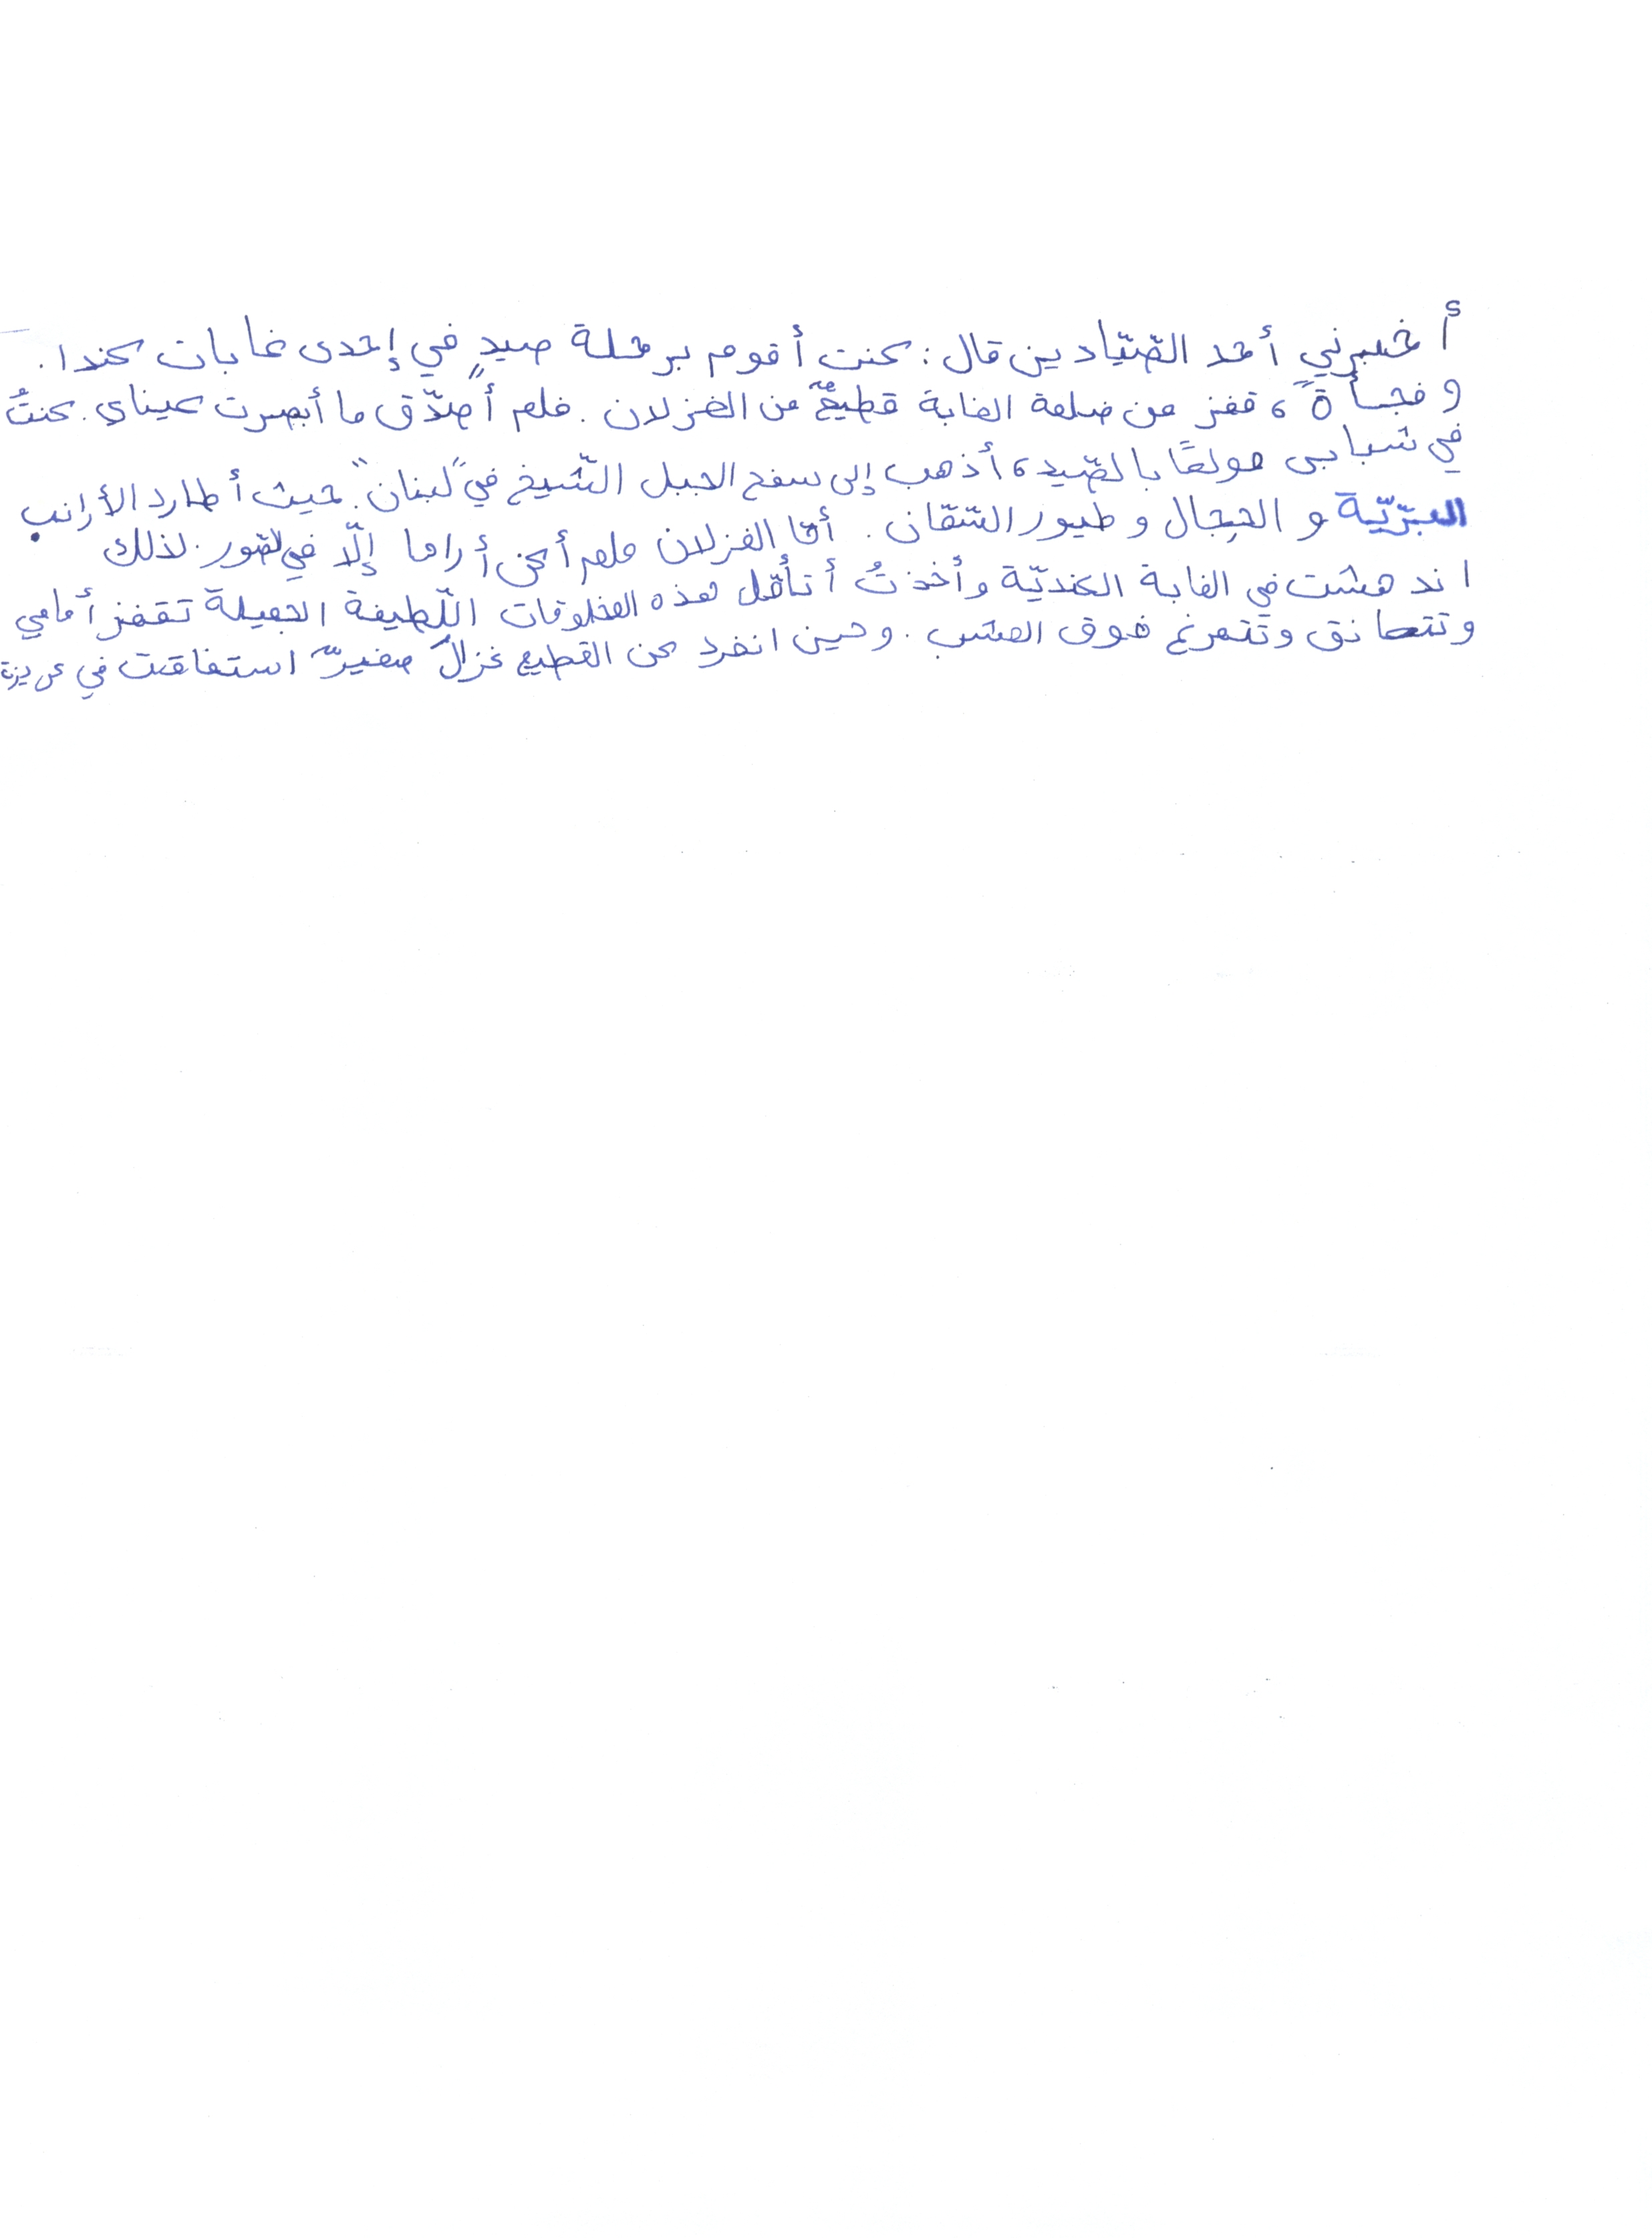 أخبرني أحد الصّيّادين قال: كنت أقوم برحلة صيدٍ في إحدى غابات كندا.
وفجأةً، قفز من ضلعة الغابة قطيعٌ من الغزلان. فلم أصدّق ما أبصرت عيناي. كنتُ
في شبابى مولعًا بالصّيد، أذهب إلى سفح الجبل الشّيخ في "لبنان". حيث أطارد الأرانب
البرّيّة و الحِجال و طيور السّمّان. أمّا الغزلان فلم أكن أراما إلّا في لصّور. لذلك
اندهشت في الغابة الكنديّة وأخذتُ أتأمّل هذه المخلوقات اللّطيفة الجميلة تقفز أمامي
وتتعانق وتتمرغ فوق العشب. وحين انفرد عن القطيع غزالٌ صغيرٌ استفاقت في عريزة